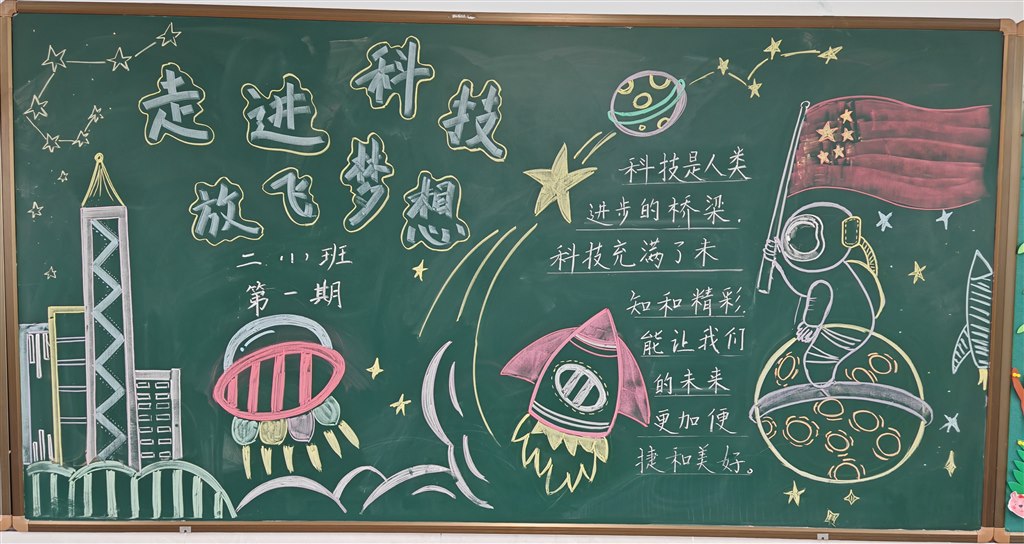 走进科技
放飞梦想
二(1)班
第一期
科技是人类
进步的桥梁.
科技充满了未
知和精彩
能让我们
的未来
更加便
捷和美好。